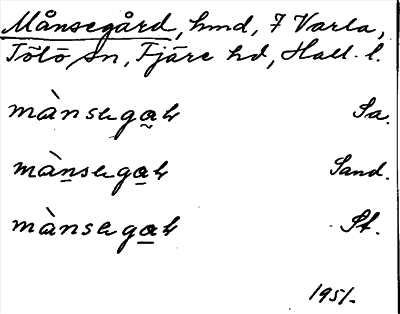 Månsegård, hmd, 7 Varla,
Tölö sn, Fjäre hd, Hall. l.
mànsega̰k Sa.
màn̲sega̲k Sand.
mànsega̲k St.
1951.